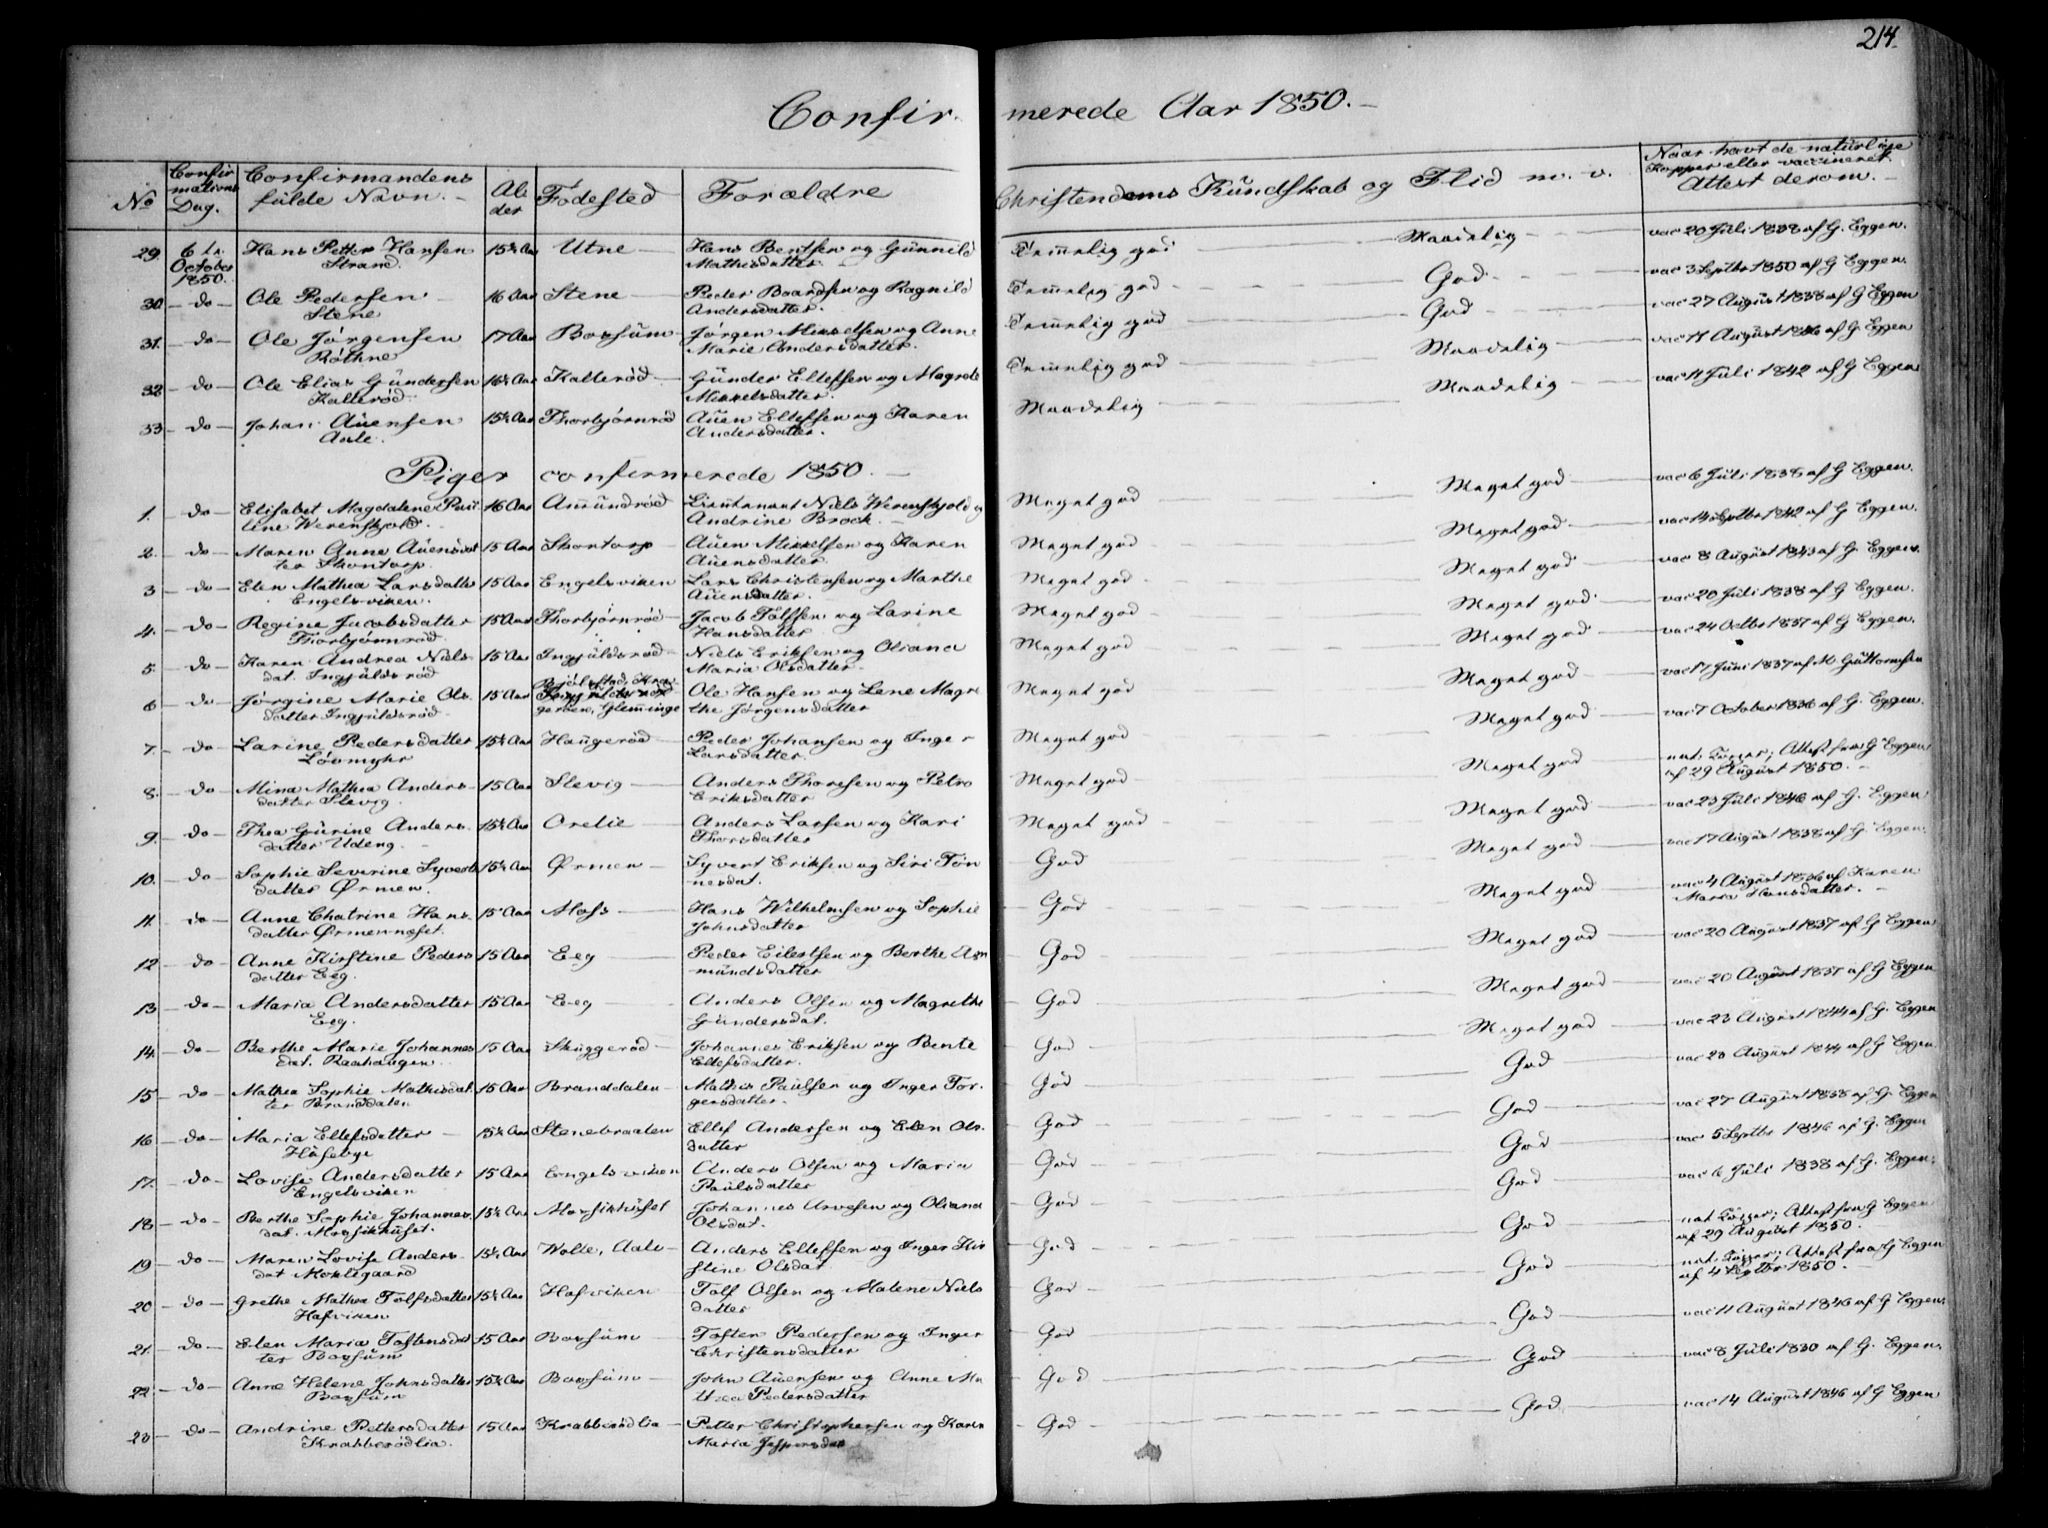 214.
Confir- merede Aar 1850.
No
Confirmations Dag.
Confirmandens fulde Navn.
Alder
Fødested
Forældre
Christendoms Kundskab og Flid m. v.
Naar havt de naturlige Kopper eller vaccineret. Attest derom.
29. 6te October 1850. Hans Petter Hansen Strand. 15½ Aar Utne Hans Bentsen og Gunnild Mathisdatter. Temmelig god Maadelig vac 20 Juli 1838 af G. Eggen.
30. do Ole Pedersen Stene 16 Aar Stene Peder Baardsen og Ragnild Andersdatter. Temmelig god God vac 3 Septbr 1850 af G Eggen.
31. do Ole Jørgensen Røthne 17 Aar Borsum Jørgen Mikkelsen og Anne Marie Andersdatter. Temmelig god God vac 27 August 1838 af G Eggen
32. do Ole Elias Gundersen Kallerød 16½ Aar Kallerød Gunder Ellefsen og Magrete Mikkelsdatter. Temmelig god Maadelig vac 11 August 1836 af G. Eggen
33. do Johan Auensen Aale. 15½ Aar Thorbjørnrød Auen Ellefsen og Karen Andersdatter. Maadelig Maadelig vac 11 Juli 1842 af G Eggen
Piger confirmerede 1850.
1. do Elisabet Magdalene Pauline Werenskjold. 16 Aar Amundrød Lieutenant Niels Werenskjold og Andrine Brock. Meget god Meget god vac 6 Juli 1838 af G Eggen.
2. do Maren Anne Auensdatter Thontorp. 15 Aar Thontorp Auen Mikkelsen og Karen Auensdatter. Meget god Meget god vac 14 Septbr 1842 af G Eggen.
3 do Elen Mathea Larsdatter Engelsviken. 15 Aar Engelsviken Lars Christensen og Marthe Auensdatter. Meget god Meget god vac 8 August 1843 af G. Eggen.
4. do Regine Jacobsdatter Thorbjørnrød. 15 Aar Thorbjørnrød Jacob Tolfsen og Larine Hansdatter Meget god Meget god vac 20 Juli 1838 af G. Eggen.
5. do Karen Andrea Nielsdat. Ingjuldsrød 15 Aar Ingjuldsrød Niels Eriksen og Oliana Maria Olsdatter. Meget god Meget god vac 24 Octbr 1837 af G. Eggen.
6 do Jørgine Marie Olsdatter Ingjuldsrød. 15 Aar Ingjuldsrød Glemminge Ole Hansen og Lene Magrethe Jørgensdatter Meget god Meget god vac 17 Juni 1837 af M. Guttormsen
7. do Larine Pedersdatter Løvmyhr 15½ Aar Haugerød Peder Johansen og Inger Larsdatter. Meget god Meget god vac 7 October 1836 af G. Eggen.
8. do Mina Mathea Andersdatter Slevig. 15 Aar Slevig Anders Thoresen og Petro Eriksdatter Meget god Meget god nat. Kopper; Attest fra G Eggen af 29 August 1850.
9. do Thea Gurine Andersdatter Udeng. 15½ Aar Orelie Anders Larsen og Kari Thorsdatter Meget god Meget god vac 23 Juli 1846 af G. Eggen
10. do Sophie Severine Syvertsdatter Ørmen. 15½ Aar Ørmen Syvert Eriksen og Siri Tønnesdat. God Meget god vac 17 August 1838 af G. Eggen.
11. do Anne Chatrine Hansdatter Ørmennæset. 15 Aar Moss Hans Wilhelmsen og Sophie Johnsdatter God Meget god vac 4 August 1836 af Karen Maria Hansdatter.
12 do Anne Kirstine Pedersdatter Eeg. 15 Aar Eeg Peder Eilertsen og Berthe Asmundsdatter God Meget god vac 20 August 1837 af G. Eggen
13 do Maria Andersdatter Eeg. 15 Aar Eeg Anders Olsen og Magrethe Gundersdat. God Meget god vac 20 August 1837 af G Eggen
14. do Berthe Marie Johannesdat. Raahaugen. 15 Aar Skuggerød Johannes Eriksen og Bente Ellefsdatter. God Meget god vac 23 August 1844 af G. Eggen
15 do Mathea Sophie Mathisdatter Branddalen 15 Aar Branddalen Mathis Paulsen og Inger Torgersdatter. God God vac 23 August 1844 af G Eggen.
16 do Maria Ellefsdatter Husebye 15½ Aar Stenebraaten Ellef Andersen og Elen Olsdatter God God vac 27 August 1838 af G. Eggen
17. do Lovise Andersdatter Engelsviken 15 Aar Engelsviken Anders Olsen og Maria Paulsdatter God God vac 5 Septbr 1846 af G. Eggen
18 do Berthe Sophie Johannesdat. Mosikhuset. 15½ Aar Mosikhuset Johannes Arvesen og Oliana Olsdat. God God vac 6 Juli 1838 af G. Eggen.
19 do Maren Lovise Andersdat Moklegaard 15½ Aar Wolle, Aale Anders Ellefsen og Inger Kirstine Olsdat God God nat Kopper; Attest fra G Eggen af 29 August 1850.
20 do Grethe Mathea Tolfsdatter Hafviken 15½ Aar Hafviken Tolf Olsen og Malene Nielsdatter God God nat. Kopper; Attest fra G Eggen af 4 Septbr 1850.
21. do Elen Maria Tostensdatter Borsum 15 Aar Borsum Tosten Pedersen og Inger Christensdatter God God vac 11 August 1846 af G Eggen.
22 do Anne Helene Johnsdatter Borsum 15½ Aar Borsum John Auensen og Anne Mathea Pedersdatter God God vac 8 Juli 1830 af G. Eggen.
23 do Andrine Pettersdatter Krabberødlia. 15 Aar Krabberødlia Petter Christophersen og Karen Maria Jespersdat God God vac 14 August 1846 af G Eggen